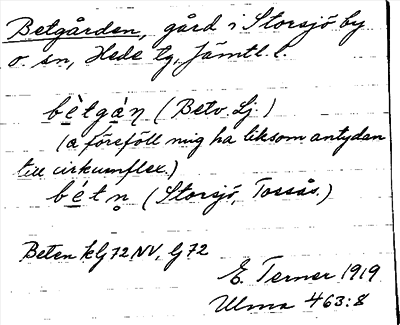 Betgården, gård i Storsjö by
o. sn, Hede tg, Jämtl. l.
bètgàṇ (Betv. Lj.)
(a föreföll mig ha liksom antydan
till cirkumflex.)
bétṇ (Storsjö, Tossås.)
Beten kLj 72 NV, Lj 72
E. Terner 1919
Ulma 463:8